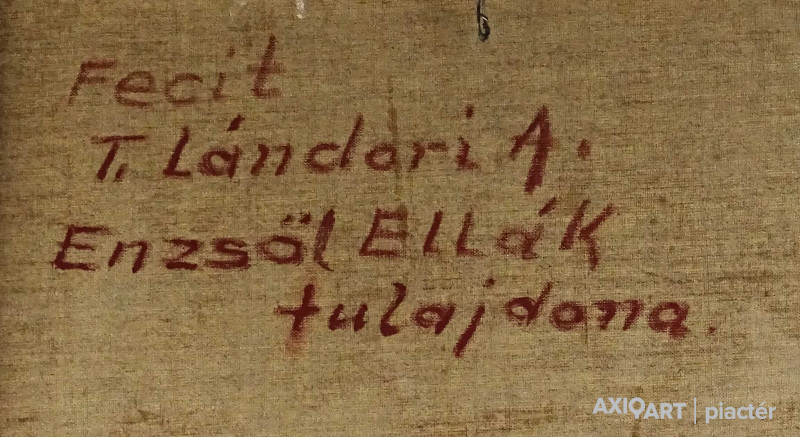 Fecit
T. Lándori A.
Enzsöl Ellák
tulajdona.
AXIOART | piactér